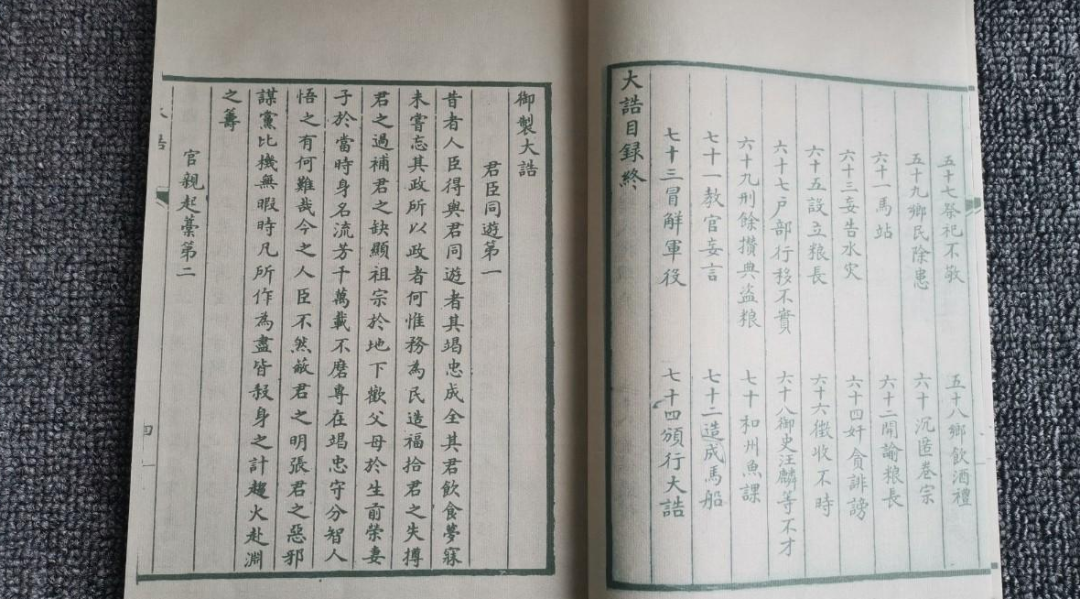 五十七祭祀不敬 五十八鄉飲酒禮
五十九鄉民除患 六十沉匿卷宗
六十一馬站 六十二開諭粮長
六十三妄告水灾 六十四奸貪誹謗
六十五設立粮長 六十六徵收不時
六十七戶部行移不實 六十八御史汪麟等不才
六十九刑餘攢典盜粮 七十和州魚課
七十一教官妄言 七十二造成馬船
七十三冒解軍役 七十四頒行大誥
大誥目録終
御製大誥
君臣同遊第一
昔者人臣得與君同遊者其竭忠成全其君飲食夢寐
未嘗忘其政所以政者何惟務為民造福拾君之失撙
君之過補君之缺顯祖宗於地下歡父母於生前榮妻
子於當時身名流芳千萬載不磨專在竭忠守分智人
悟之有何難哉今之人臣不然蔽君之明張君之惡邪
謀黨比機無暇時凡所作為盡皆殺身之計趨火赴淵
之籌
官親起藁第二
大誥
四